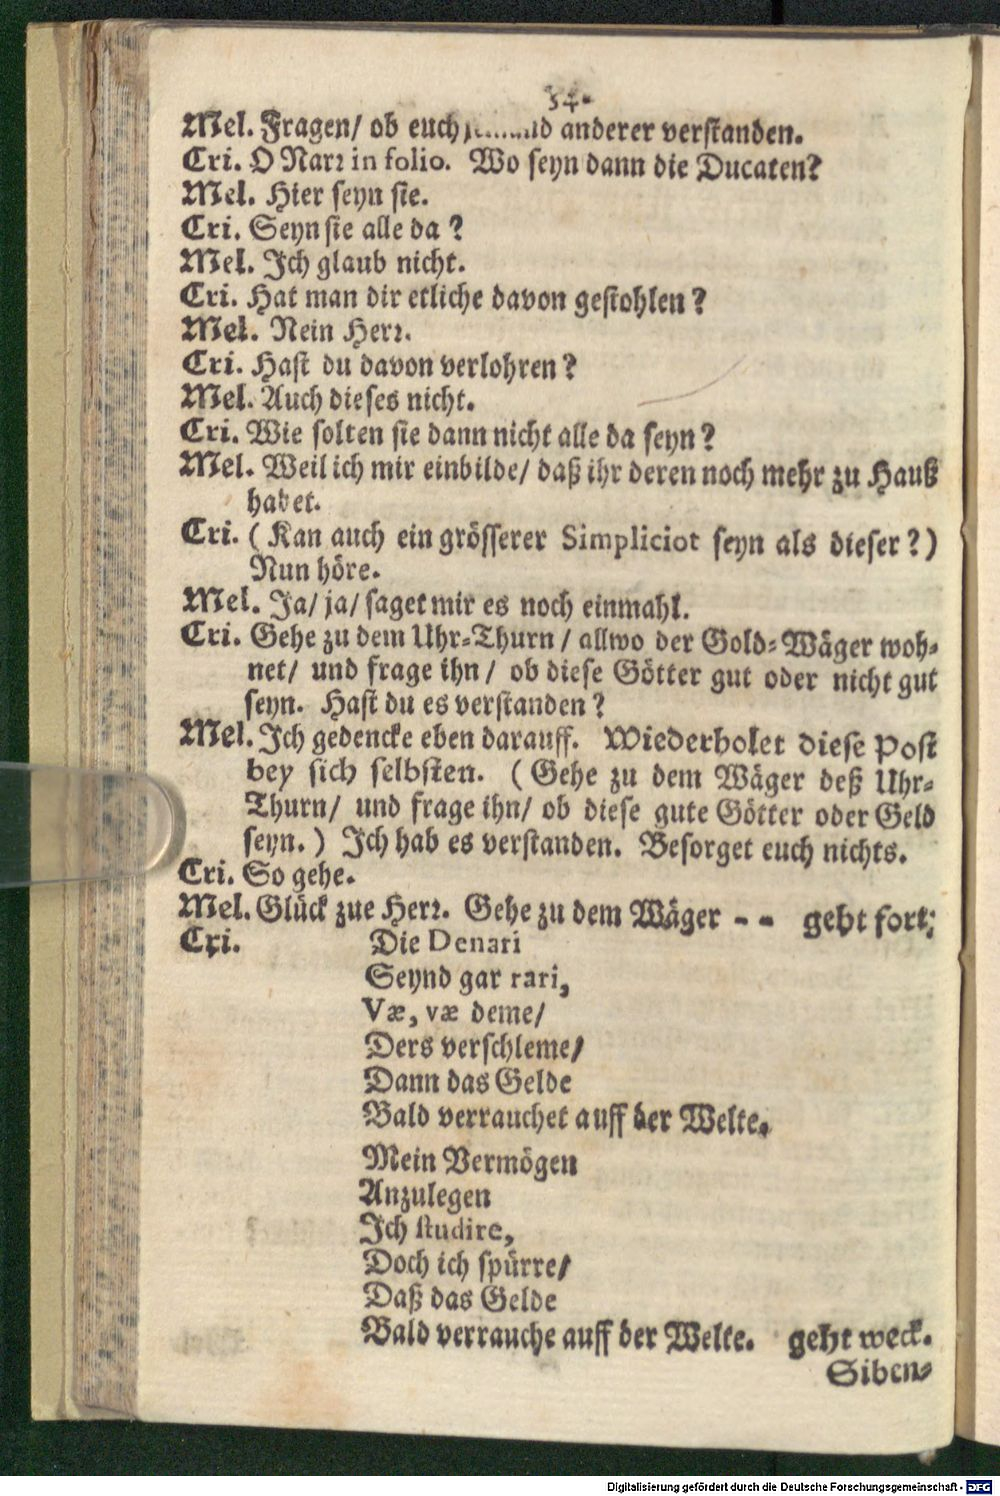 34.
Mel. Fragen/ ob euch anderer verstanden.
Cri. O Narr in folio. Wo seyn dann die Ducaten?
Mel. Hier seyn sie.
Cri. Seyn sie alle da?
Mel. Ich glaub nicht.
Cri. Hat man dir etliche davon gestohlen?
Mel. Nein Herr.
Cri. Hast du davon verlohren?
Mel. Auch dieses nicht.
Cri. Wie solten sie dann nicht alle da seyn?
Mel. Weil ich mir einbilde/ daß ihr deren noch mehr zu Hauß
habet.
Cri. (Kan auch ein grösserer Simpliciot seyn als dieser?)
Nun höre.
Mel. Ja/ ja/ saget mir es noch einmahl.
Cri. Gehe zu dem Uhr-Thurn/ allwo der Gold-Wäger woh-
net/ und frage ihn/ ob diese Götter gut oder nicht gut
seyn. Hast du es verstanden?
Mel. Ich gedencke eben darauff. Wiederholet diese Post
bey sich selbsten. (Gehe zu dem Wäger deß Uhr-
Thurn/ und frage ihn/ ob diese gute Götter oder Geld
seyn.) Ich hab es verstanden. Besorget euch nichts.
Cri. So gehe.
Mel. Glück zue Herr. Gehe zu dem Wäger - - geht fort;
Cri. Die Denari
Seynd gar rari,
Væ, væ deme/
Ders verschleme/
Dann das Gelde
Bald verrauchet auff der Welte.
Mein Vermögen
Anzulegen
Ich studire,
Doch ich spürre/
Daß das Gelde
Bald verrauche auff der Welte. geht weck.
Siben-
Digitalisierung gefördert durch die Deutsche Forschungsgemeinschaft - DFG